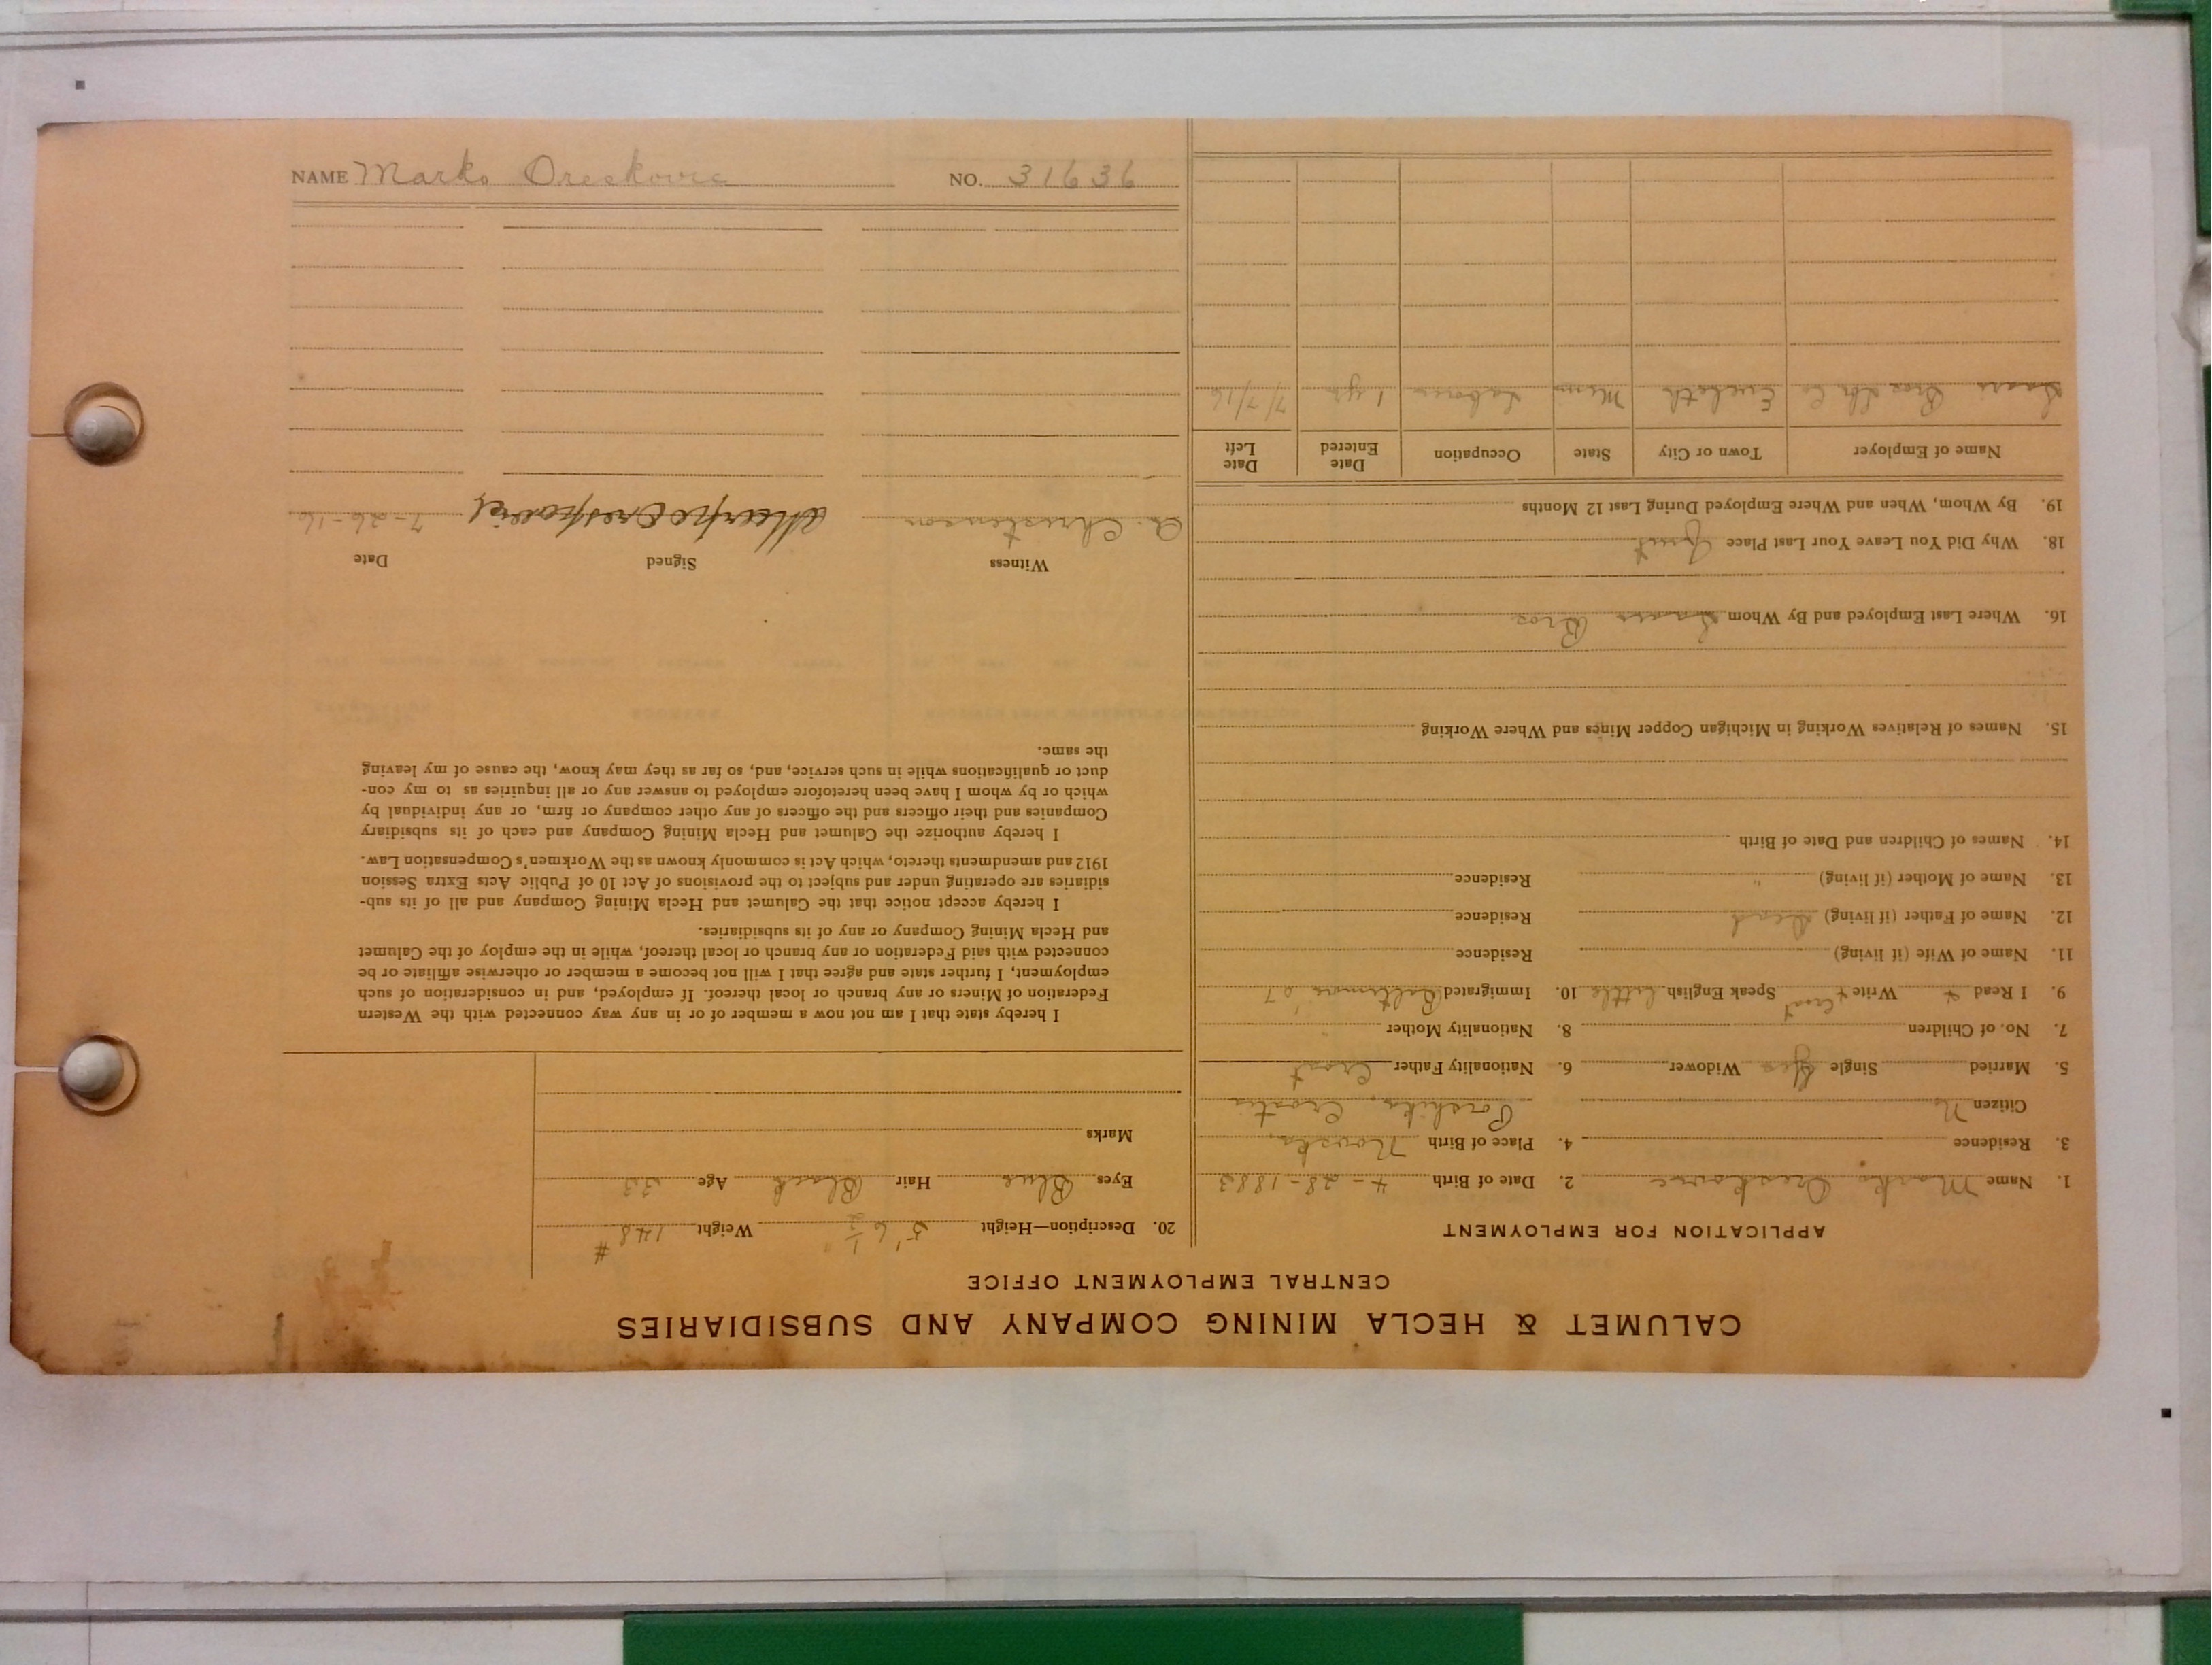 NAME Marko Oreskovic NO. 31636
CALUMET & HECLA MINING COMPANY AND SUBSIDIARIES
CENTRAL EMPLOYMENT OFFICE
APPLICATION FOR EMPLOYMENT
1. Name Marko Oreskovic 2. Date of Birth 4-28-1883
3. Residence 4. Place of Birth
Citizen No Croatia
5. Married Single Yes Widower 6. Nationality Father Croat
7. No. of Children 8. Nationality Mother "
9. I Read & Write Croat Speak English little 10. Immigrated Baltimore '07
11. Name of Wife (if living) Residence
12. Name of Father (if living) Dead Residence
13. Name of Mother (if living) " Residence
14. Names of Children and Date of Birth
15. Names of Relatives Working in Michigan Copper Mines and Where Working
16. Where Last Employed and By Whom Bros
18. Why Did You Leave Your Last Place Quit
19. By Whom, When and Where Employed During Last 12 Months
Name of Employer Town or City State Occupation Date Entered Date Left
Bros Eveleth Minn Laborer 1 yr 7/7/16
20. Description—Height 5' 6 1/2" Weight 148 #
Eyes Blue Hair Black Age 33
Marks
I hereby state that I am not now a member of or in any way connected with the Western
Federation of Miners or any branch or local thereof. If employed, and in consideration of such
employment, I further state and agree that I will not become a member or otherwise affiliate or be
connected with said Federation or any branch or local thereof, while in the employ of the Calumet
and Hecla Mining Company or any of its subsidiaries.
I hereby accept notice that the Calumet and Hecla Mining Company and all of its sub-
sidiaries are operating under and subject to the provisions of Act 10 of Public Acts Extra Session
1912 and amendments thereto, which Act is commonly known as the Workmen's Compensation Law.
I hereby authorize the Calumet and Hecla Mining Company and each of its subsidiary
Companies and their officers and the officers of any other company or firm, or any individual by
which or by whom I have been heretofore employed to answer any or all inquiries as to my con-
duct or qualifications while in such service, and, so far as they may know, the cause of my leaving
the same.
Witness Signed Date
Christenson 7-26-16